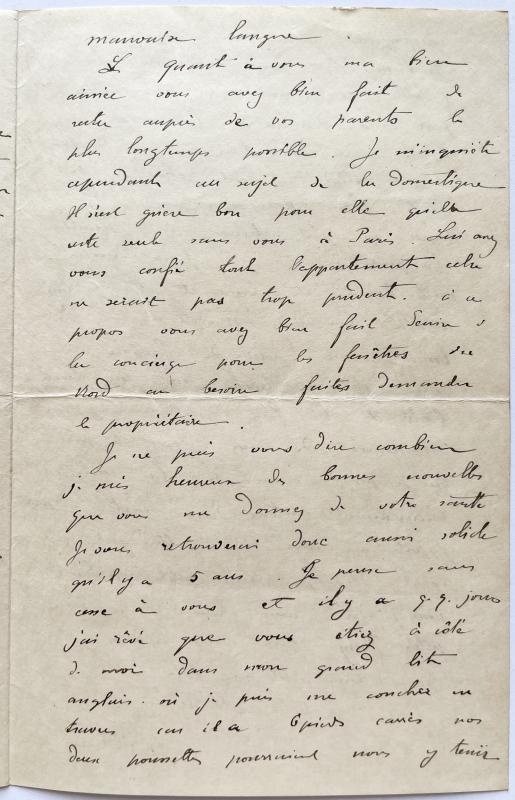 mauvaise langue.
Quant à vous ma bien
aimée vous avez bien fait de
rester auprès de vos parents le
plus longtemps possible. Je m'inquiète
cependant au sujet de la domestique
Il n'est guère bon pour elle qu'elle
reste seule sans vous à Paris. Lui avez
vous confié tout l'appartement cela
ne serait pas trop prudent. à ce
propos vous avez bien fait d'écrire à
la concierge pour les fenêtres du
Nord au besoin faites demander
le propriétaire.
Je ne puis vous dire combien
je suis heureux des bonnes nouvelles
que vous me donnez de votre santé
Je vous retrouverai donc aussi solide
qu'il y a 5 ans. Je pense sans
cesse à vous et il y a q.q. jours
j'ai rêvé que vous étiez à côté
de moi dans mon grand lit
anglais. où je puis me coucher en
travers car il a 6 pieds carrés nos
deux poussettes pourraient nous y tenir